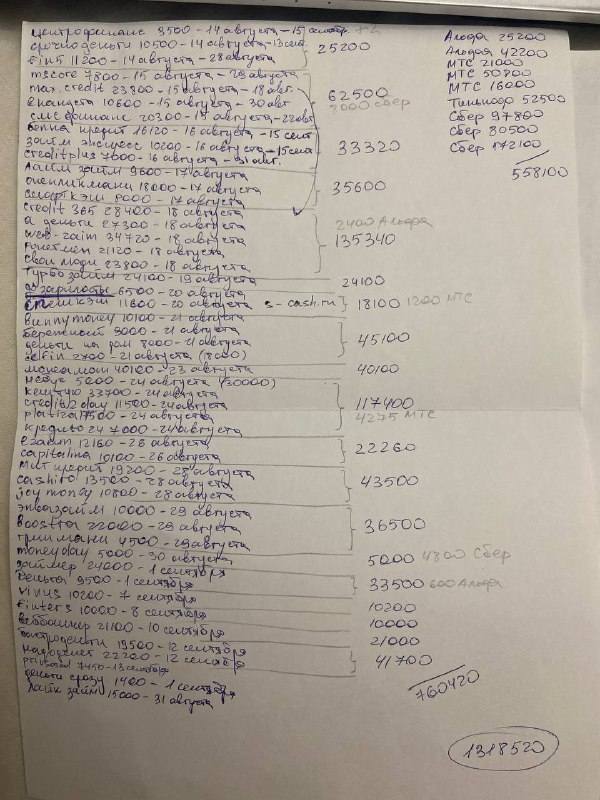 центрофинанс 9500 - 14 августа - 15 сентябр
срочноденьги 10500 - 14 августа - 13 сент
Fin5 11200 - 14 августа - 28 августа
25200
mscore 7800 - 15 августа - 29 августа
max.credit 23800 - 15 августа - 18 авг.
екануста 10600 - 15 августа - 30 авг
смс финанс 20300 - 15 августа - 22 авг
62500
2000 сбер
белка кредит 16120 - 16 августа - 15 сент
займ экспресс 10200 - 16 августа - 15 сент
creditplus 7000 - 16 августа - 31 авг.
33320
Лайм займ 9600 - 17 августа
онлинкмани 18000 - 17 августа
смарткэш 8000 - 17 августа
35600
credit 365 28400 - 18 августа
а деньги 27300 - 18 августа
web-zaim 34720 - 18 августа
рокетмен 21120 - 18 августа
свои люди 23800 - 18 августа
2400 Альфа
135340
турбозайм 24100 - 19 августа
24100
до зарплаты 6500 - 20 августа
спешкэш 11600 - 20 августа s-cash.ru
18100 1200 МТС
винnymoney 10100 - 21 августа
бережност 9000 - 21 августа
деньги на дом 8000 - 21 августа
2700 - 21 августа (8000)
45100
манеаман 40100 - 23 августа
40100
5000 - 24 августа (30000)
кештую 33700 - 24 августа
credit2day 11500 - 24 августа
platiza 17500 - 24 августа
24 7000 - 24 августа
117400
4275 МТС
езаем 12160 - 26 августа
capitalina 10100 - 26 августа
22260
мигкредит 19200 - 28 августа
cashiro 13500 - 28 августа
joymoney 10800 - 28 августа
43500
эквазайм 10000 - 29 августа
Boostra 22000 - 29 августа
триманни 4500 - 29 августа
36500
moneyday 5000 - 30 августа
5000 4800 Сбер
займер 24000 - 1 сентября
деньга 9500 - 1 сентября
33500 600 Альфа
vivus 10200 - 7 сентября
10200
Finters 10000 - 8 сентября
10000
веббанкир 21100 - 10 сентября
21000
быстроденьги 19500 - 12 сентября
надодenet 22200 - 12 сентября
41700
7450 - 13 сентября
деньги сразу 1400 - 1 сентября
Лайк займ 15000 - 31 августа
760420
Альфа 25200
Альфа 42200
МТС 21000
МТС 50700
МТС 16000
Тинькофф 52500
Сбер 97800
Сбер 80500
Сбер 172100
558100
1318520